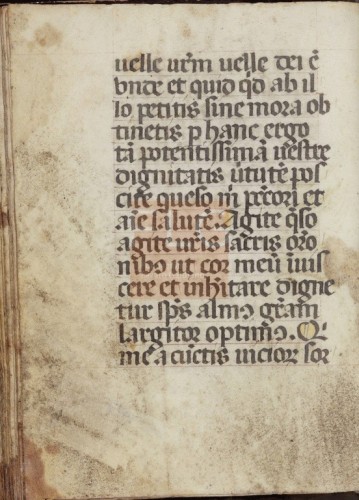 uelle ur̄m uelle dei ē
vnde et quid qd̄ ab il
lo petitis sine mora ob
tinetis p hanc ergo
tā potentissimā uestre
dignitatis ūtutē pos
cite queso m̄ p̄cori et
aīe salutē. Agite q̄so
agite ur̄is sacris or̄o
nibꝯ ut cor meū īuis
cere et inh̄itare digne
tur sp̄s almꝯ gr̄am
largitor optimꝯ. Q
me a cūctis uicioꝝ sor